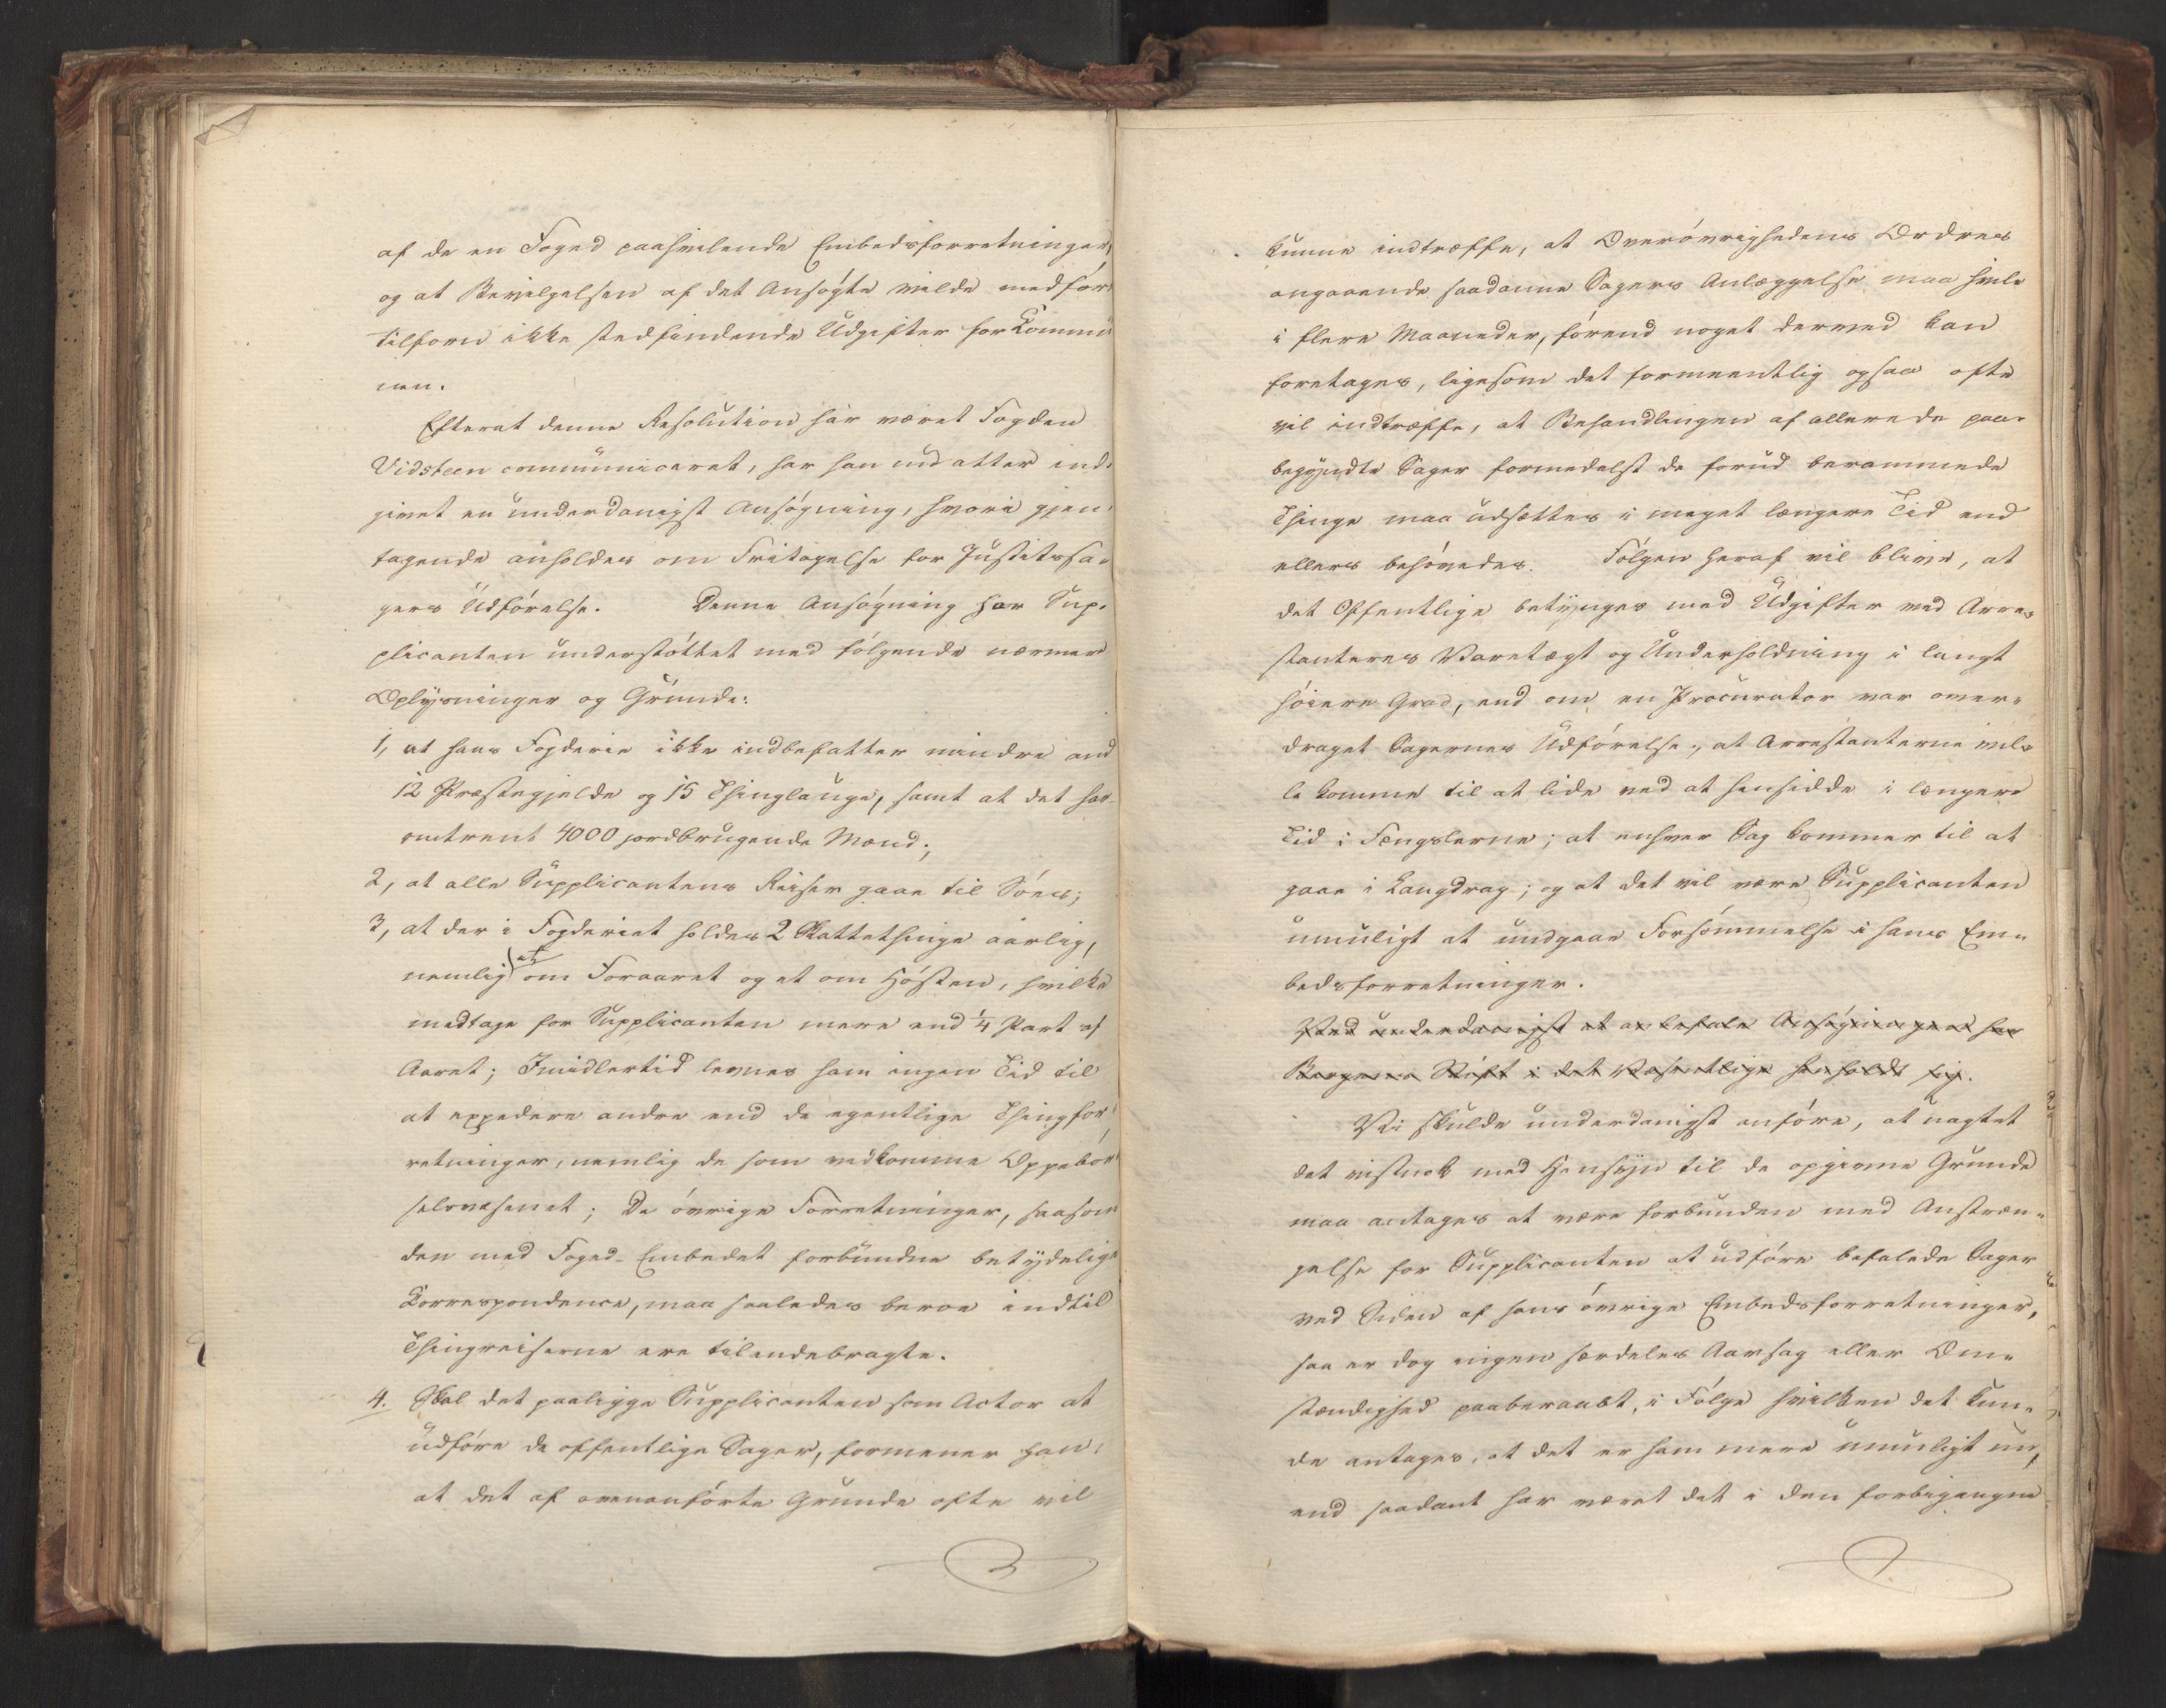 af de en Foged paahvilende Embedsforretninger,
og at Bevilgelsen af det Ansøgte vilde medføre
tilforn ikke stedfindende Udgifter for Commu-
nen.
Efterat denne Resolution har været Fogden
Vidsteen communiceret, har han nu atter ind-
givet en underdanigst Ansøgning, hvori gjen-
tagende anholdes om Fritagelse for Justitssa-
gers Udførelse. Denne Ansøgning har Sup-
plicanten understøttet med følgende nærmere
Oplysninger og Grunde:
1, at hans Fogderie ikke indbefatter mindre end
12 Præstegjelde og 15 Thinglauge, samt at det har
omtrent 4000 jordbrugende Mænd;
2, at alle Supplicantens Reiser gaae til Søes;
3, at der i Fogderiet holdes 2 Skattethinge aarlig,
nemlig et om Foraaret og et om Høsten, hvilke
medtage for Supplicanten mere end 1/4 Part af
Aaret; Imidlertid levnes ham ingen Tid til
at expedere andre end de egentlige Thingfor-
retninger, nemlig de som vedkomme Oppebør-
selsvæsenet; De øvrige Forretninger, saasom
den med Foged-Embedet forbundne betydelige
Correspondence, maa saaledes beroe indtil
Thingreiserne ere tilendebragte.
4. Skal det paaligge Supplicanten som Actor at
udføre de offentlige Sager, formener han,
at det af ovenanførte Grunde ofte vil
kunne indtræffe, at Overøvrighedens Ordres
angaaende saadanne Sagers Anlæggelse maa hvile
i flere Maaneder, førend noget dermed kan
foretages, ligesom det formeentlig ogsaa ofte
vil indtræffe, at Behandlingen af allerede paa-
begyndte Sager formedelst de forud berammede
Thinge maa udsættes i meget længere Tid end
ellers behøvedes. Følgen heraf vil blive, at
det Offentlige betynges med Udgifter ved Arre-
stanteres Varetægt og Underholdning i langt
høiere Grad, end om en Procurator var over-
draget Sagernes Udførelse; at Arrestanterne vil-
le komme til at lide ved at hensidde i længere
Tid i Fængslerne; at enhver Sag kommer til at
gaae i Langdrag; og at det vil være Supplicanten
umuligt at undgaae Forsømmelse i hans Em-
bedsforretninger.
Ved underdanigst at anbefale Ansøgningen har
Bergens Stift i det Væsentlige henholdt sig.
Vi skulde underdanigst anføre, at uagtet
det vistnok med Hensyn til de opgivne Grunde
maa antages at være forbunden med Anstræn-
gelse for Supplicanten at udføre befalede Sager
ved Siden af hans øvrige Embedsforretninger,
saa er dog ingen særdeles Aarsag eller Om-
stændighed paaberaabt, i Følge hvilken det kun-
de antages, at det er ham mere umuligt nu,
end saadant har været det i den forbigangne